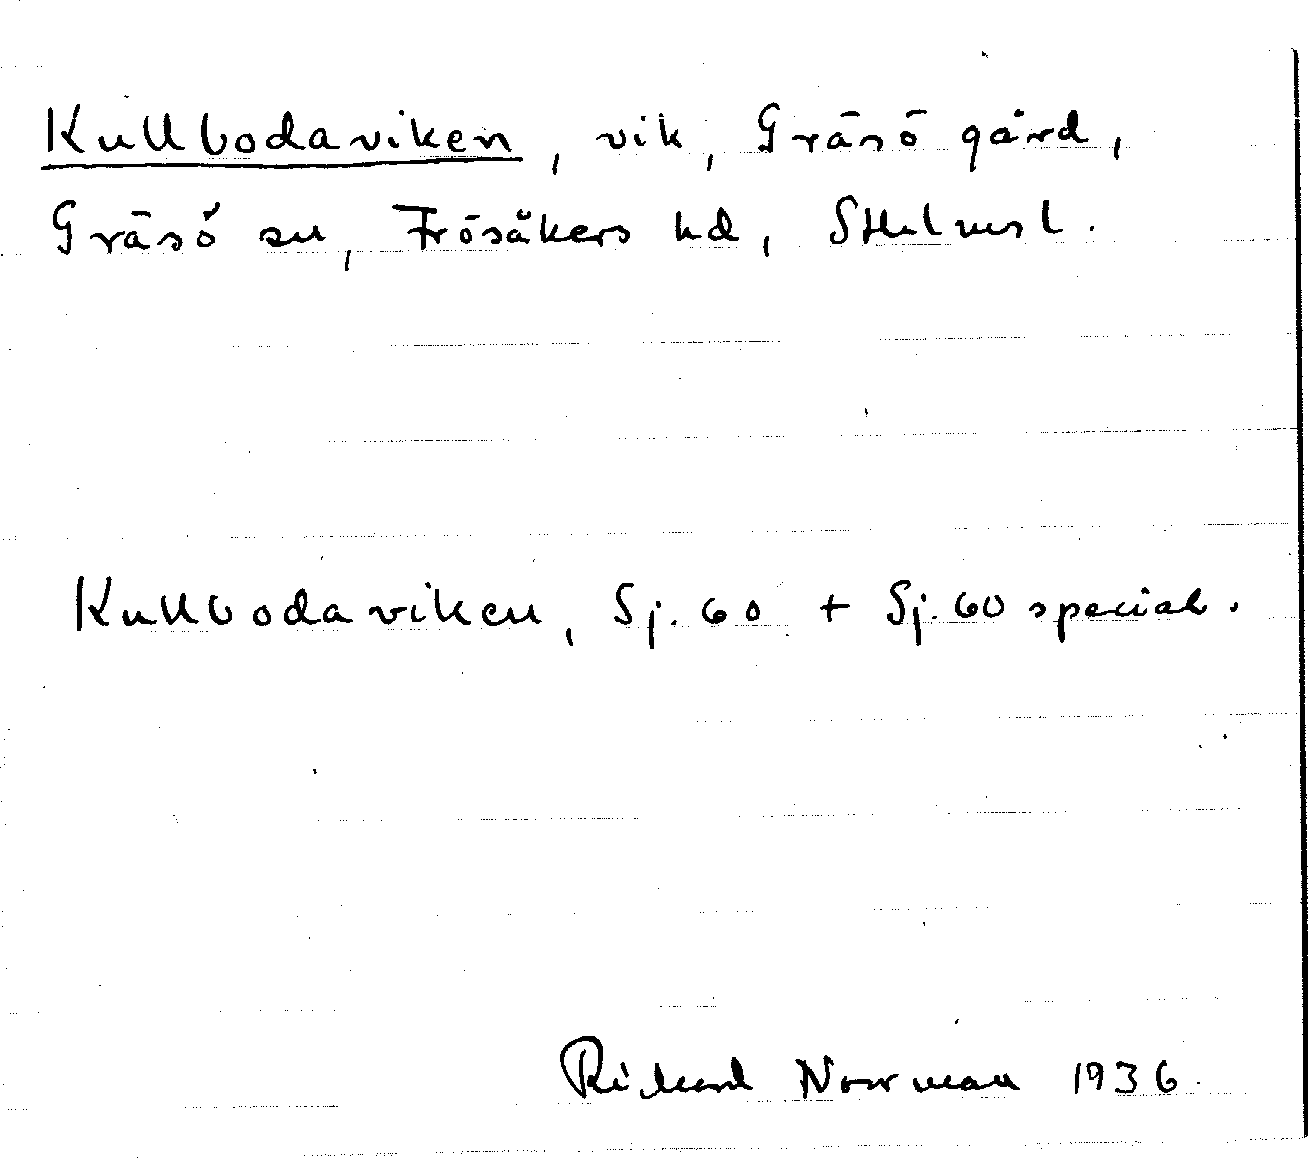 Kullbodaviken, vik, Gräsö gård,
Gräsö sn, Frösåkers hd, Sthlms l.
Kullbodaviken, Sj. 60 + Sj. 60 special.
Rickard Norrman 1936.